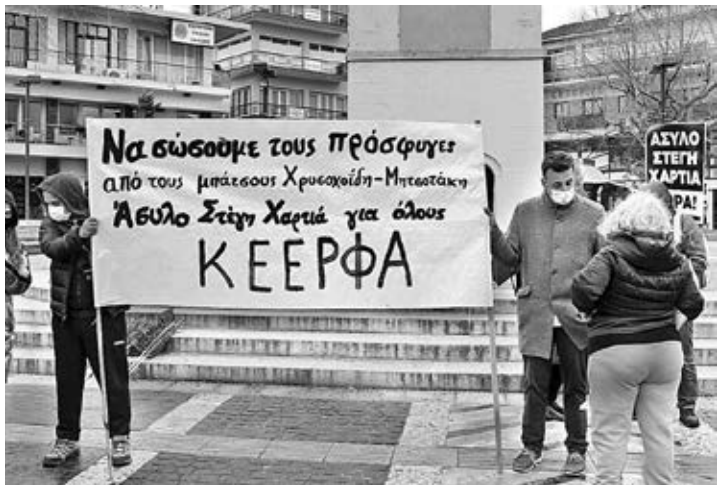 Να σώσουμε τους πρόσφυγες
από τους μπάτσους Χρυσοχοΐδη-Μητσοτάκη
Άσυλο Στέγη Χαρτιά για όλους
ΚΕΕΡΦΑ
ΑΣΥΛΟ
ΣΤΕΓΗ
ΧΑΡΤΙΑ